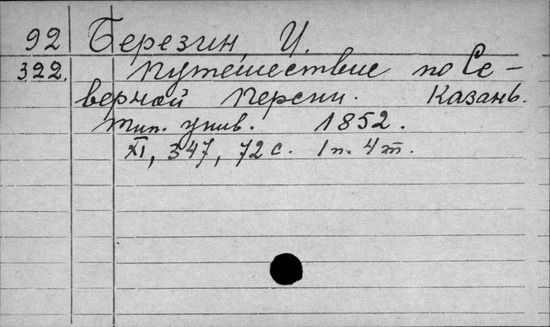 92 Березин, И.
322. Путешествие по Се-
верной Персии. Казань.
Тип. унив. 1852.
XI, 347, 72 с. 1 п. 4 т.